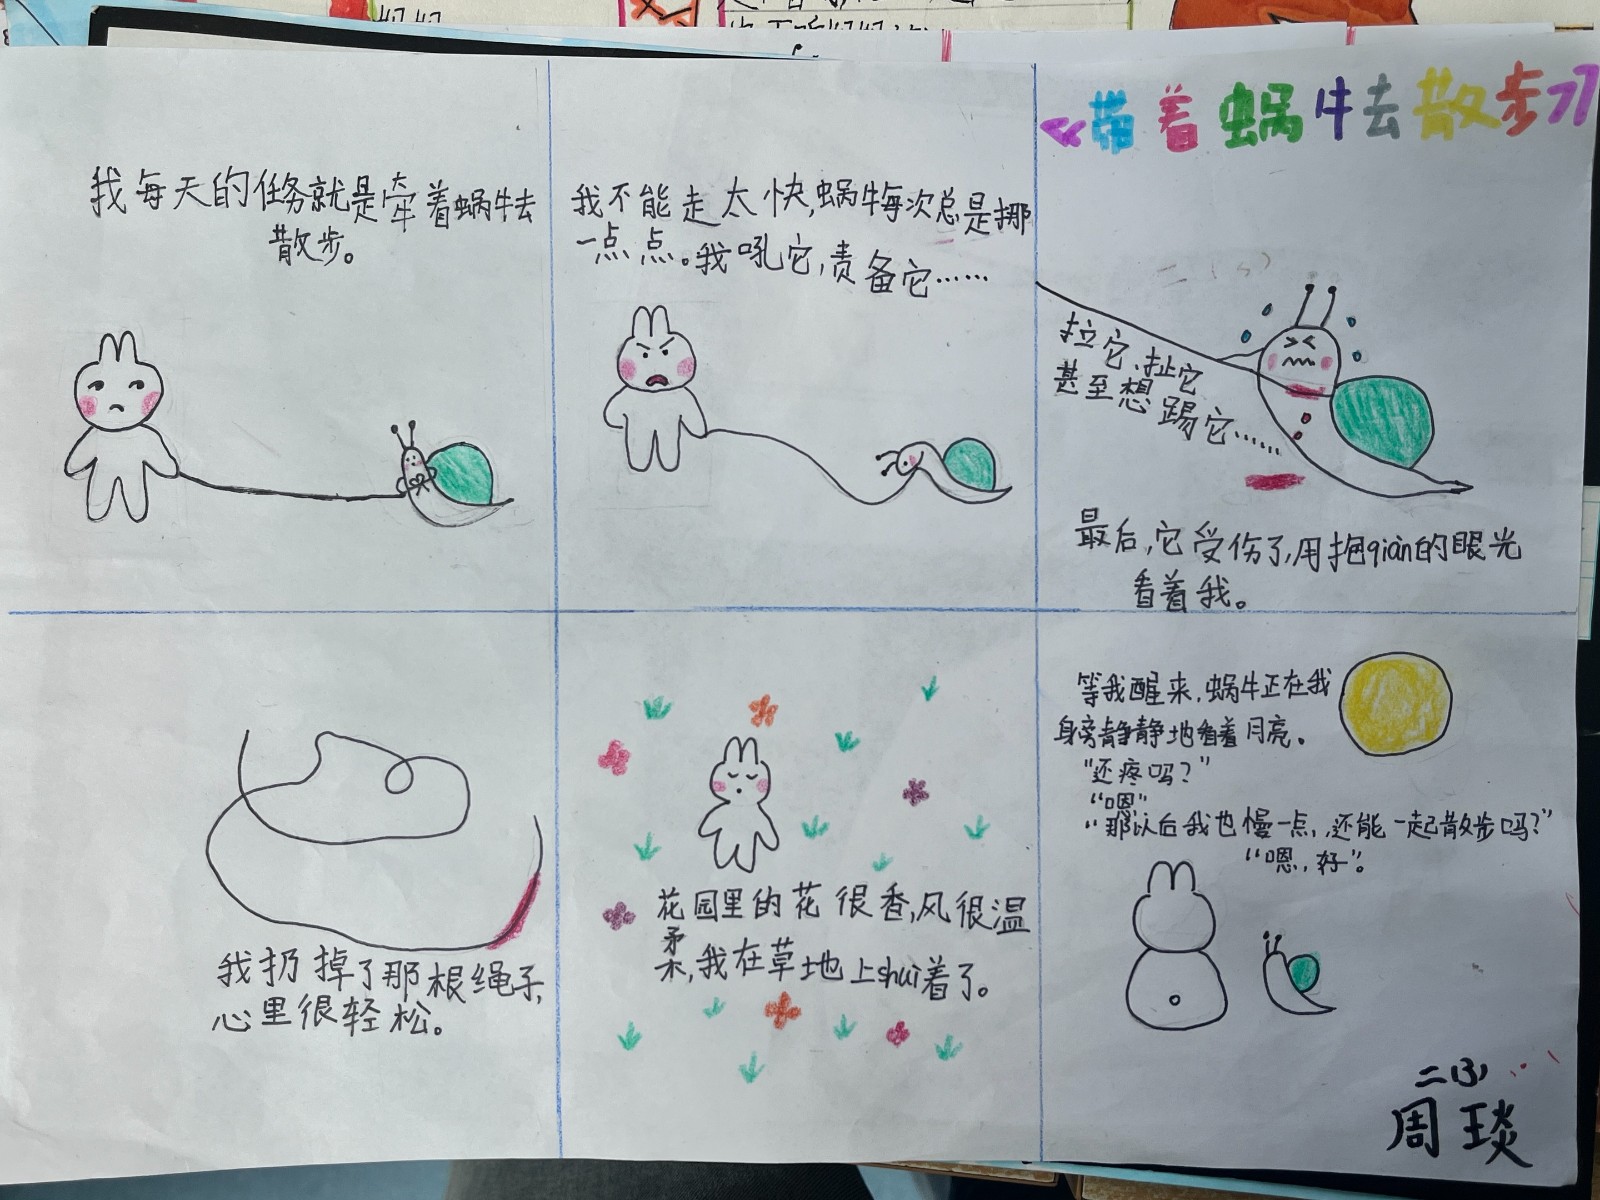 《带着蜗牛去散步》
我每天的任务就是牵着蜗牛去
散步。
我不能走太快,蜗牛每次总是挪
一点点。我吼它,责备它……
拉它、扯它
甚至想踢它……
最后,它受伤了,用抱qiàn的眼光
看着我。
我扔掉了那根绳子,
心里很轻松。
花园里的花很香,风很温
柔,我在草地上shuì着了。
等我醒来,蜗牛正在我
身旁静静地看着月亮。
“还疼吗?”
“嗯”
“那以后我也慢一点,还能一起散步吗?”
“嗯,好”。
二(3)
周琰